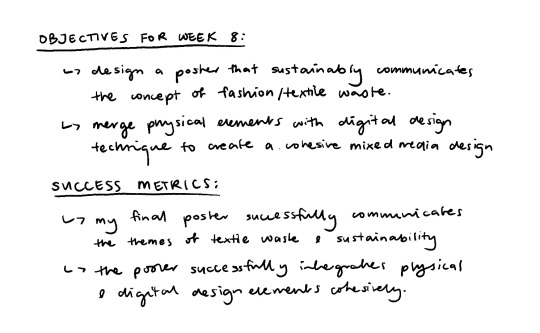 OBJECTIVES FOR WEEK 8:
↳ design a poster that sustainably communicates
the concept of fashion/textile waste.
↳ merge physical elements with digital design
technique to create a cohesive mixed media design
SUCCESS METRICS:
↳ my final poster successfully communicates
the themes of textile waste & sustainability
↳ the poster successfully integrates physical
& digital design elements cohesively.